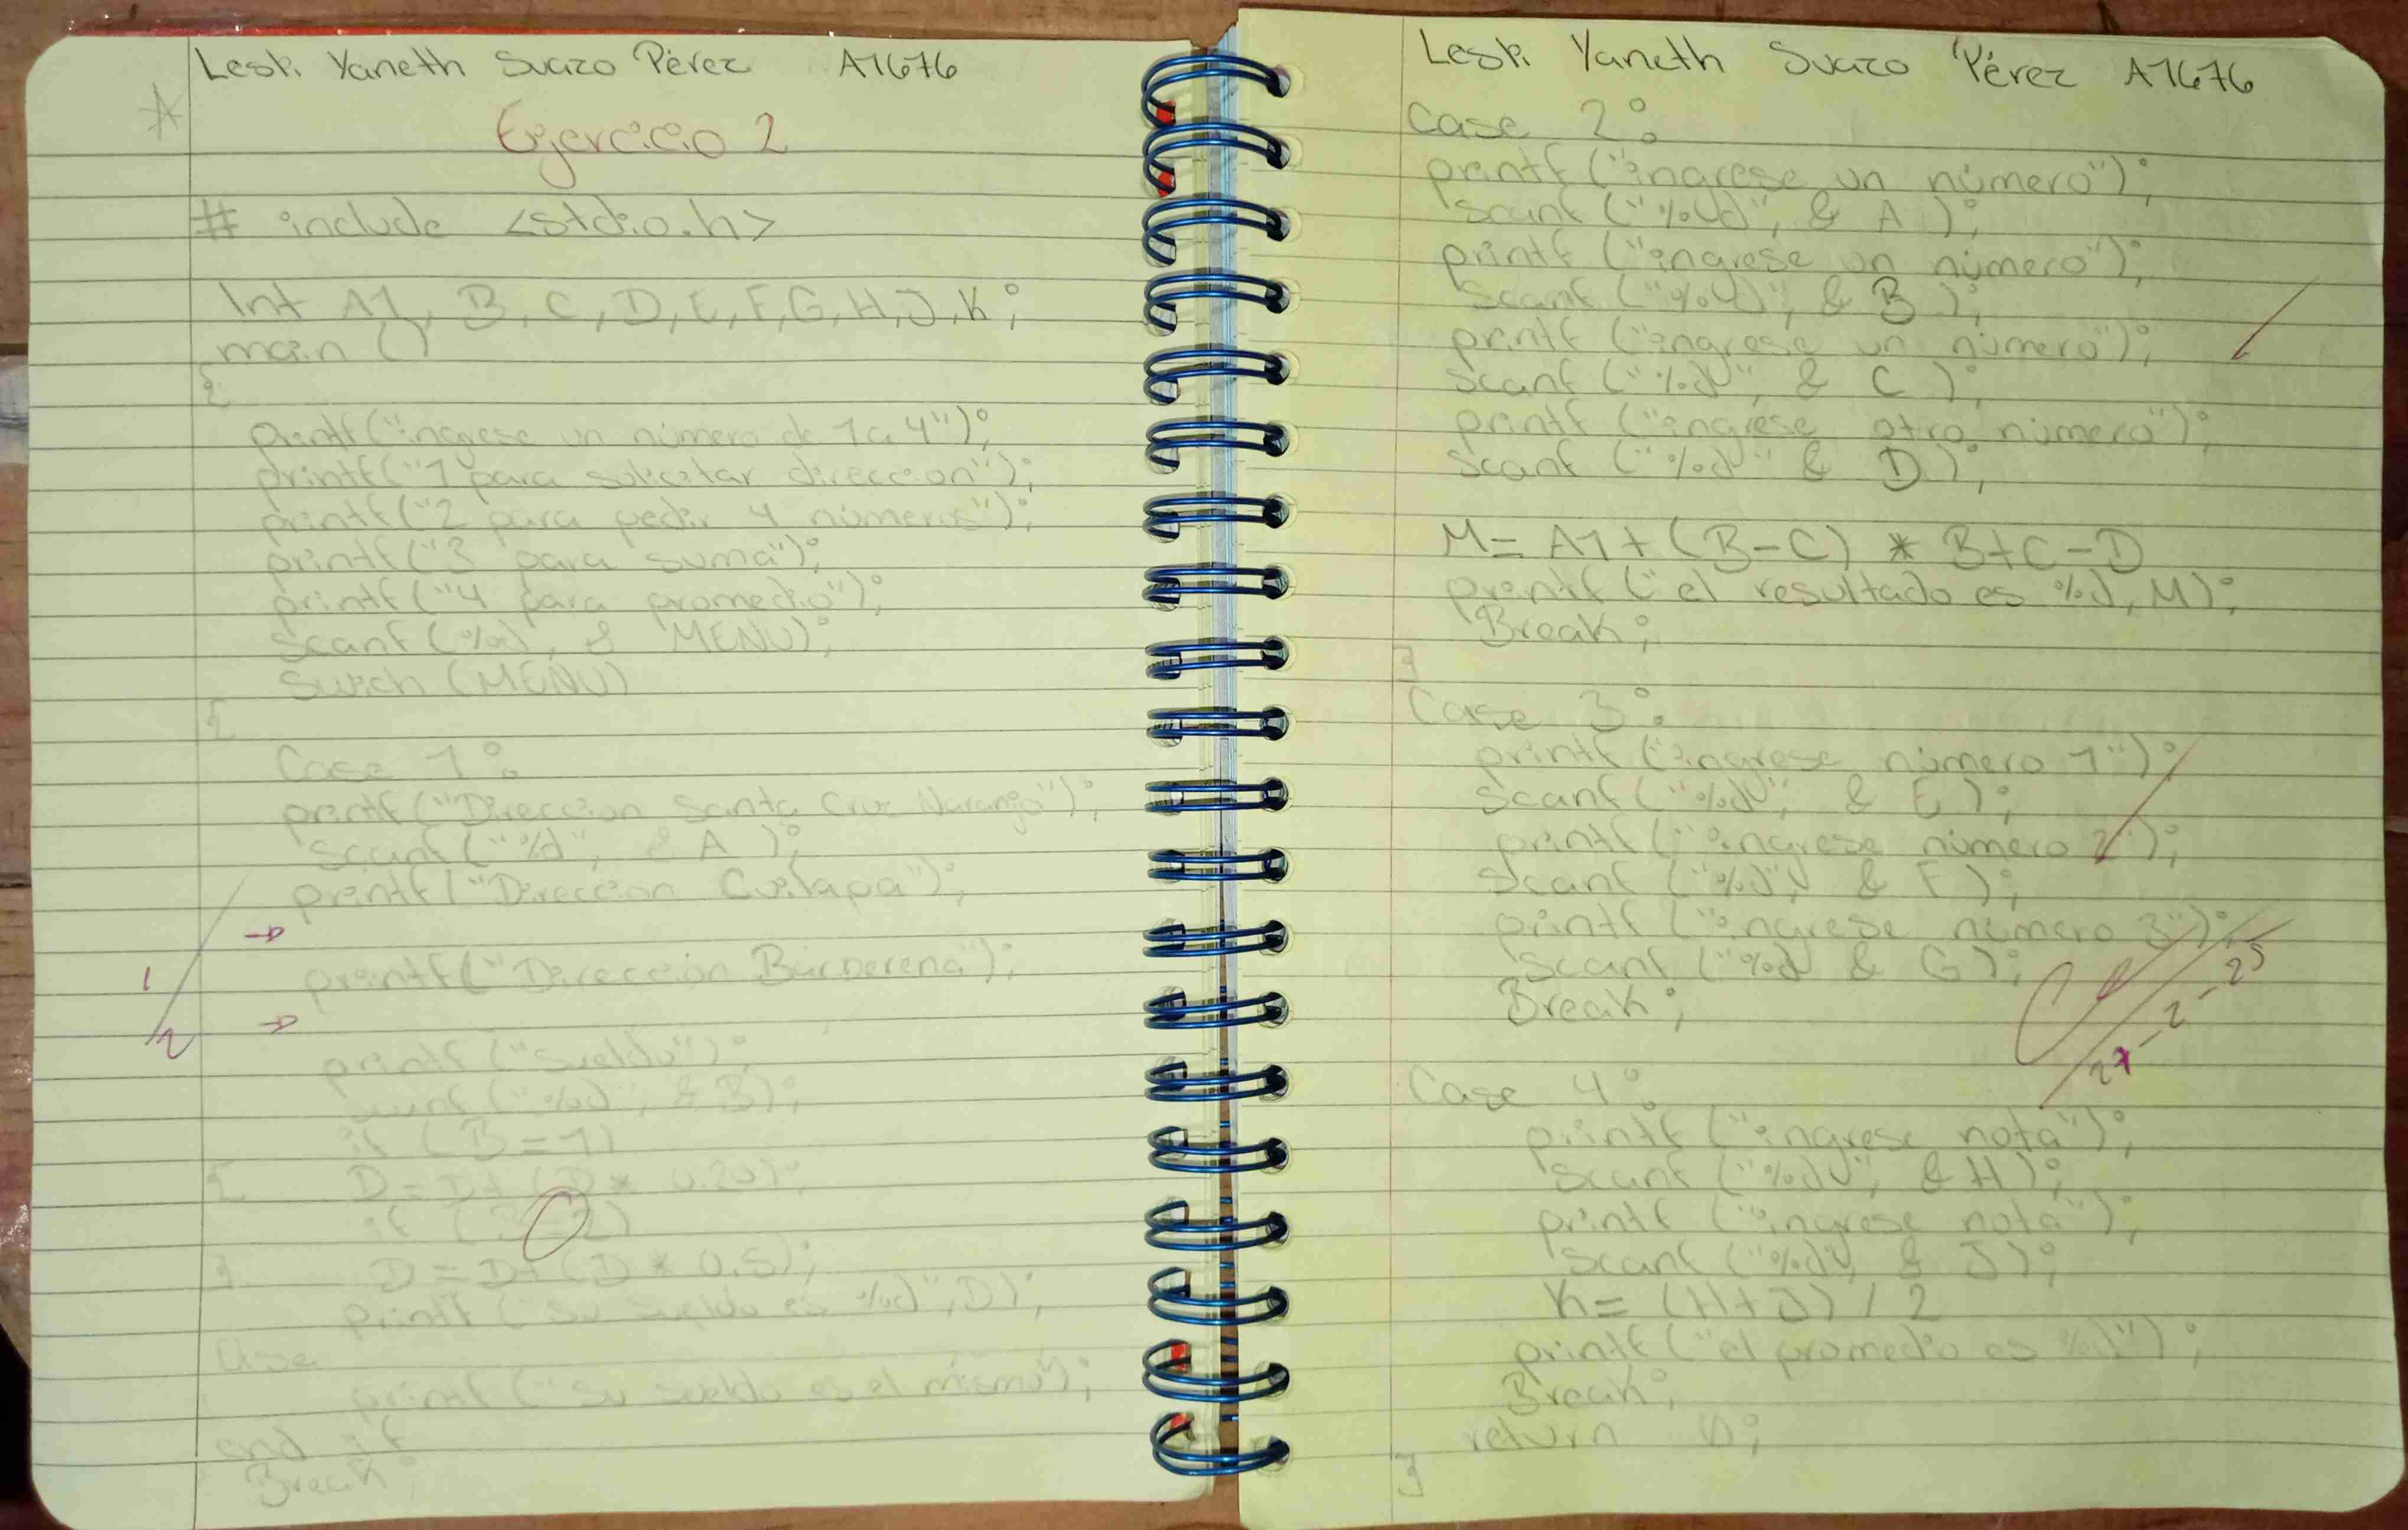 Lesli Yaneth Suazo Pérez A1676
Ejercicio 2
# include <stdio.h>
Int A1, B, C, D, E, F, G, H, J, K;
main ()
{
printf("ingrese un número de 1 a 4");
printf("1 para solicitar direccion");
printf("2 para pedir 4 números");
printf("3 para suma");
printf("4 para promedio");
scanf(%d, & MENU);
Swich (MENU)
{
Case 1:
printf("Direccion Santa Cruz Naranjo");
scanf("%d", & A );
printf("Direccion Cuilapa");
→
printf("Dirección Barberena");
→
1
2
printf("sueldo");
scanf("%d", & B);
if (B=1)
{ D = D+ (D * 0.20);
if ( =2)
} D = D+ (D * 0.5);
printf("su sueldo es %d", D);
else
printf("su sueldo es el mismo");
end if
Break;
Lesli Yaneth Suazo Pérez A1676
Case 2:
printf ("ingrese un número");
scanf ("%d", & A );
printf ("ingrese un número");
scanf ("%d", & B );
printf ("ingrese un número");
scanf ("%d", & C );
printf ("ingrese otro número");
scanf ("%d" & D );
M= A1+ (B-C) * B+C-D
printf (" el resultado es %d, M);
Break;
}
Case 3:
printf ("ingrese número 1");
scanf ("%d", & E );
printf ("ingrese número 2");
scanf ("%d", & F );
printf ("ingrese número 3");
scanf ("%d & G );
Break;
27-2-25
Case 4:
printf ("ingrese nota");
scanf ("%d", & H);
printf ("ingrese nota");
scanf ("%d, & J);
K= (H+J) / 2
printf ("el promedio es %d");
Break;
return 0;
}